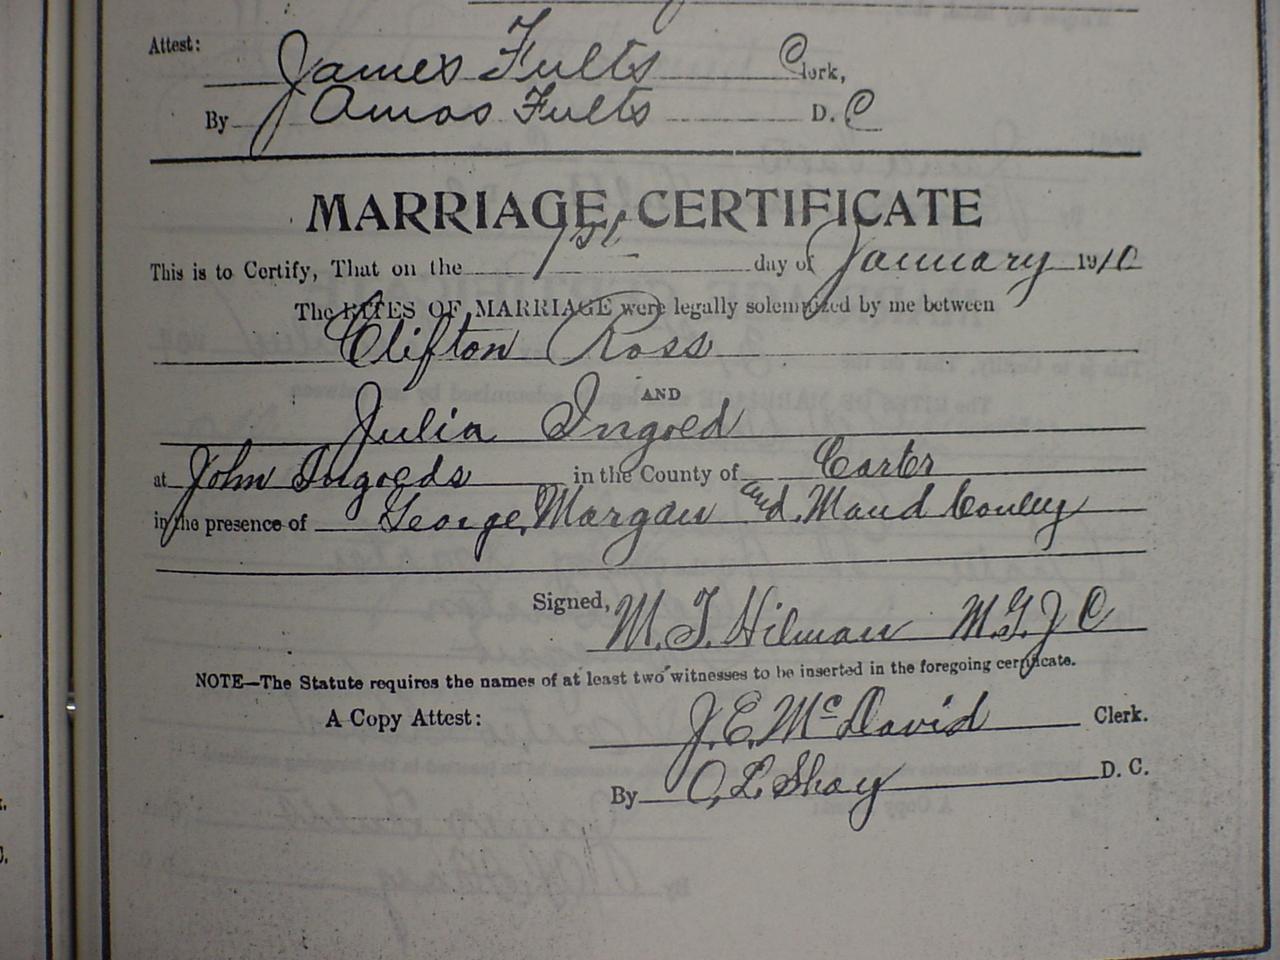 Attest:
James Fults Clerk,
By Amos Fults D. C
MARRIAGE CERTIFICATE
This is to Certify, That on the 1st day of January 1910
The RITES OF MARRIAGE were legally solemnized by me between
Clifton Ross
AND
Julia Ingoed
at John Ingoeds in the County of Carter
in the presence of George Morgan and Maud Conley
Signed, M. T. Hilman M.G.J C
NOTE—The Statute requires the names of at least two witnesses to be inserted in the foregoing certificate.
A Copy Attest: J. E. McDavid Clerk.
By O, L. Shay D. C.